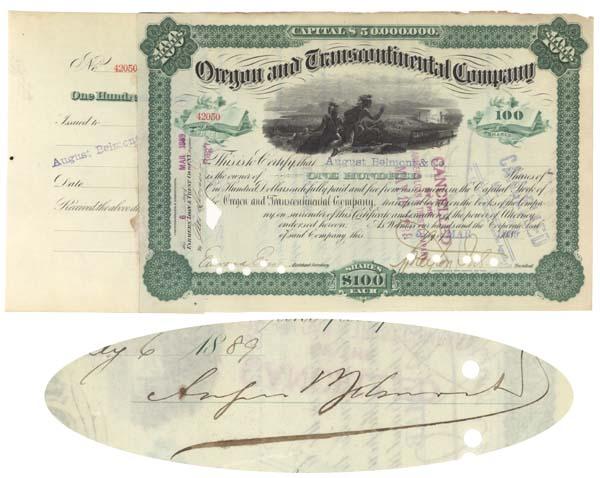 CAPITAL $50,000,000.
No. 42050
Oregon and Transcontinental Company
One Hundre
42050
100
SHARES
Issued to
August Belmont
This is to Certify that August Belmont & Co.
is the owner of ONE HUNDRED Shares of
One Hundred Dollars each fully paid and free from assessments in the Capital Stock of
Oregon and Transcontinental Company,
transferable only on the books of the Compa
ny on surrender of this Certificate and
of the power of Attorney
endorsed hereon.
Witness our hands and the Corporate Seal
of said Company this
Date
Received the above
MAR 1889
FARMERS LOAN & TRUST COMPANY
CANCELLED
CANCELLED
Assistant Secretary
President
SHARES
$100
EACH
6 1889
August Belmont